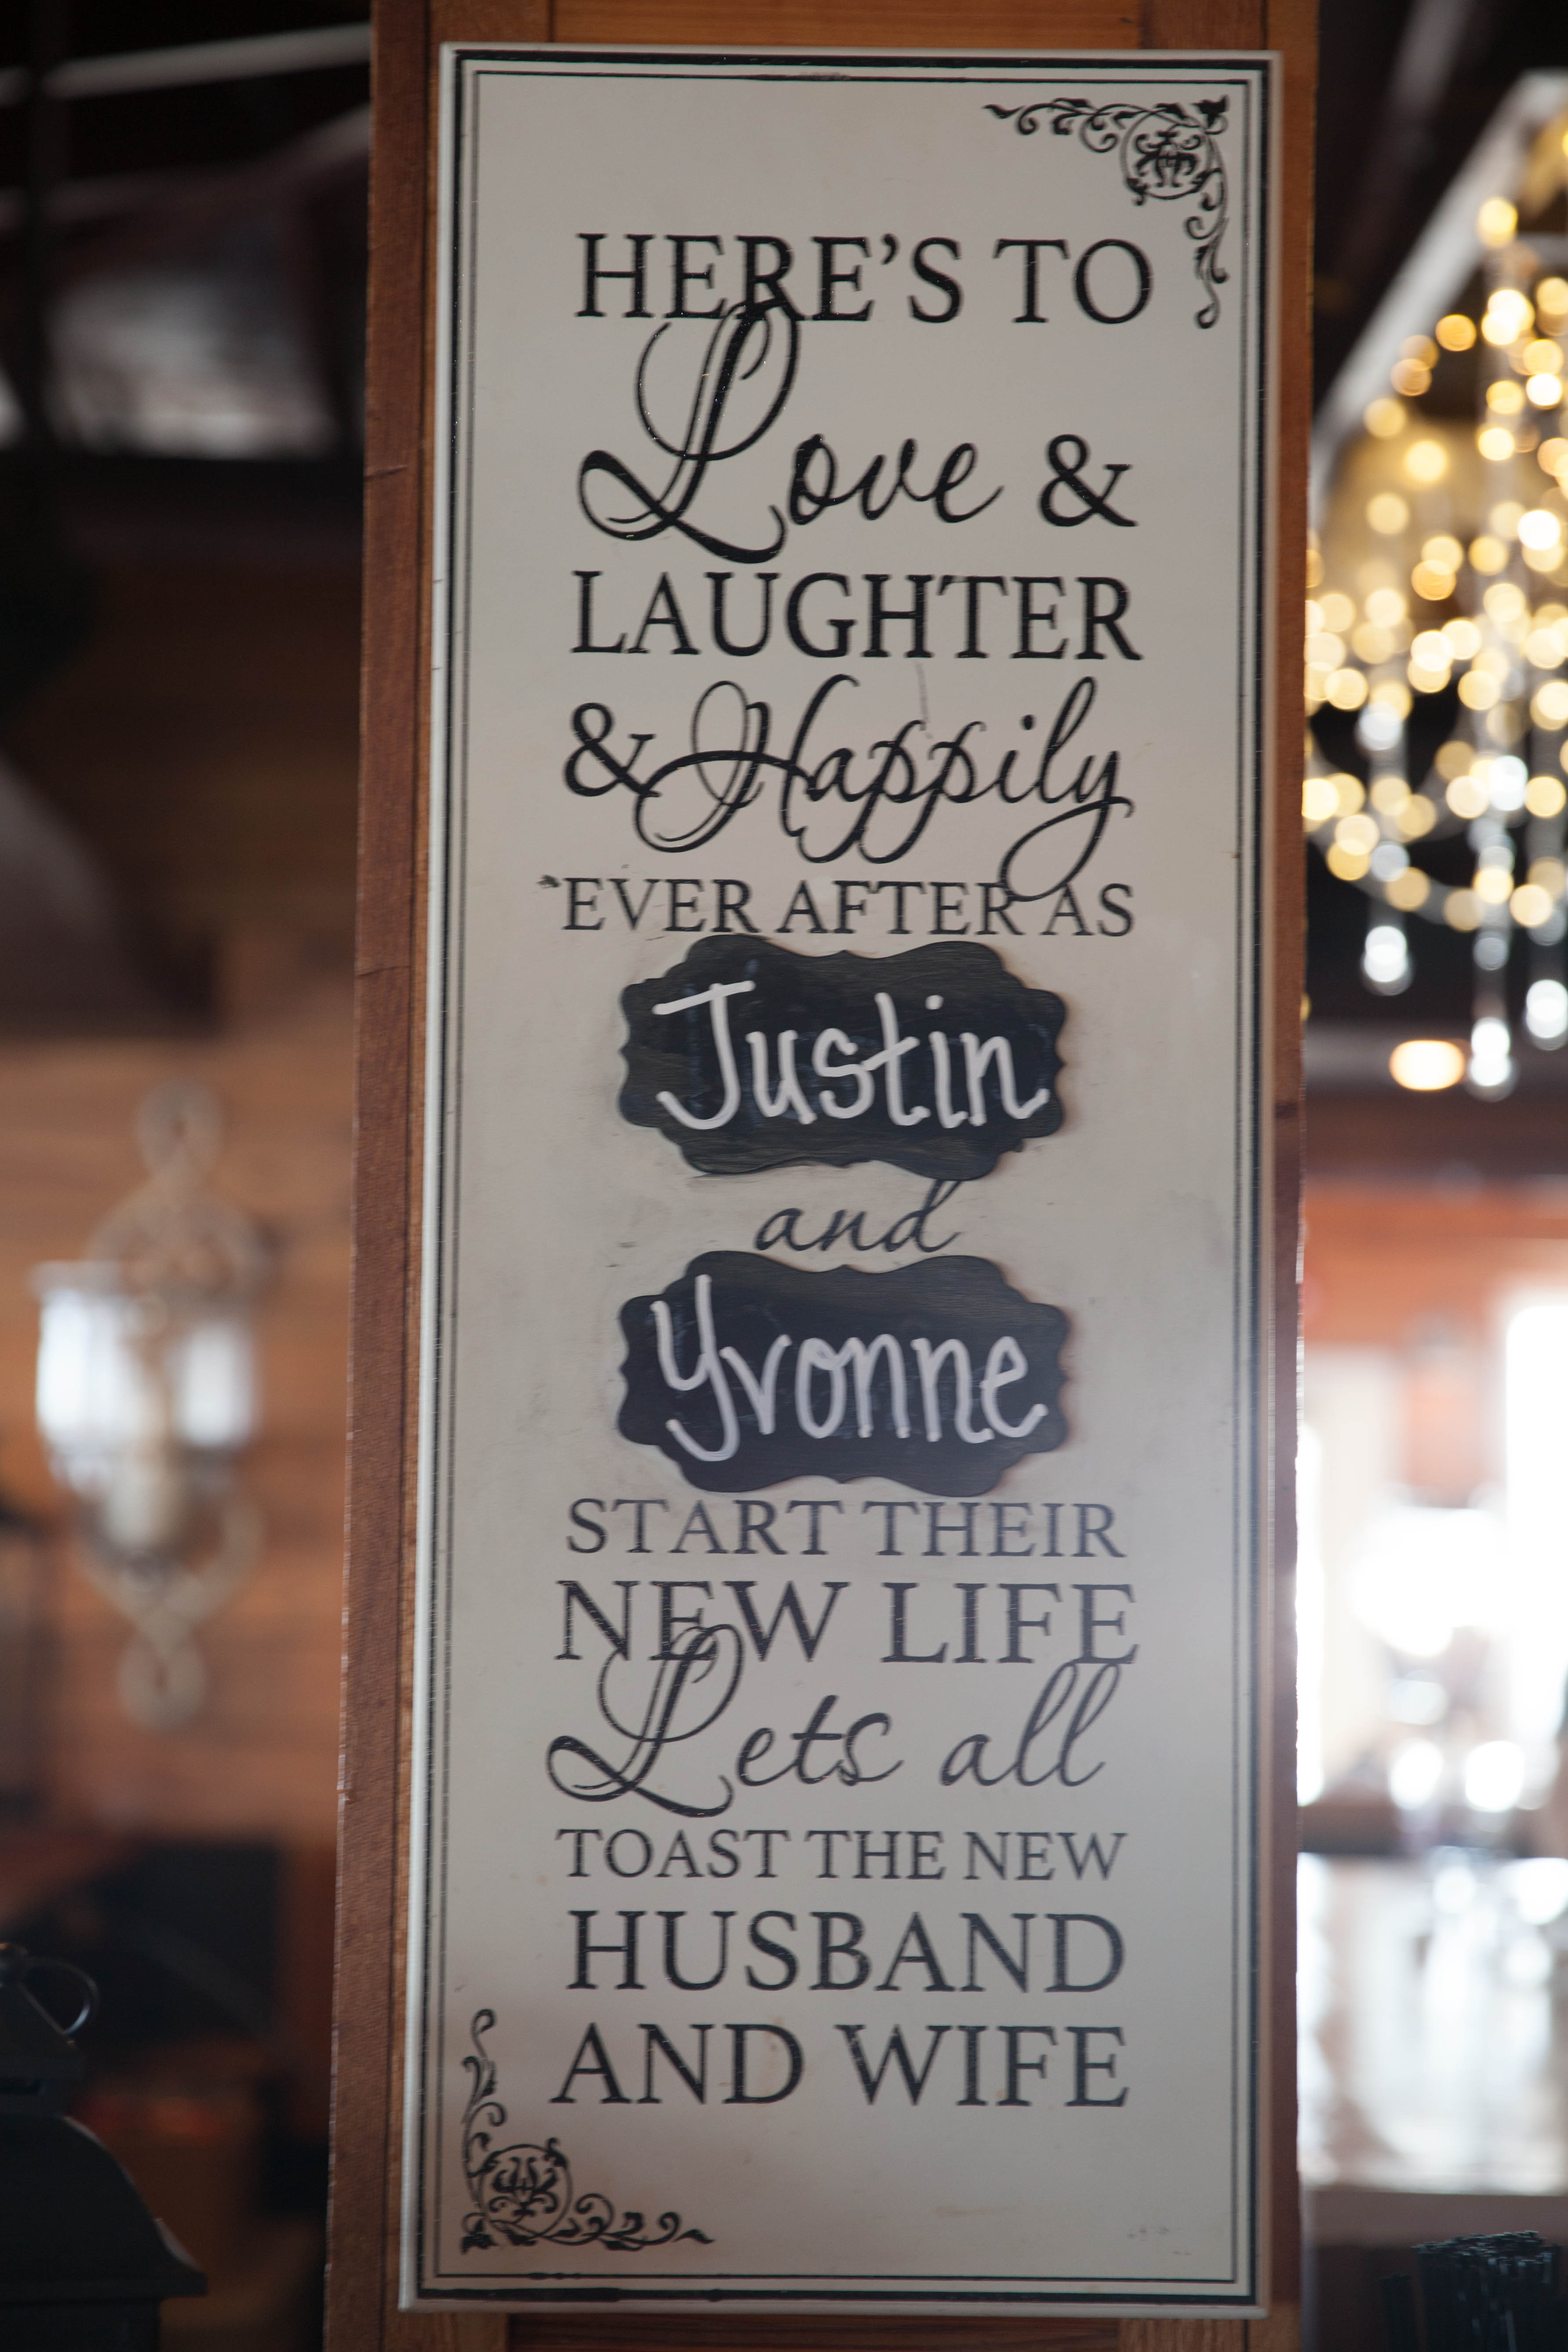 HERE'S TO
Love &
LAUGHTER
& Happily
EVER AFTER AS
Justin
and
Yvonne
START THEIR
NEW LIFE
Lets all
TOAST THE NEW
HUSBAND
AND WIFE